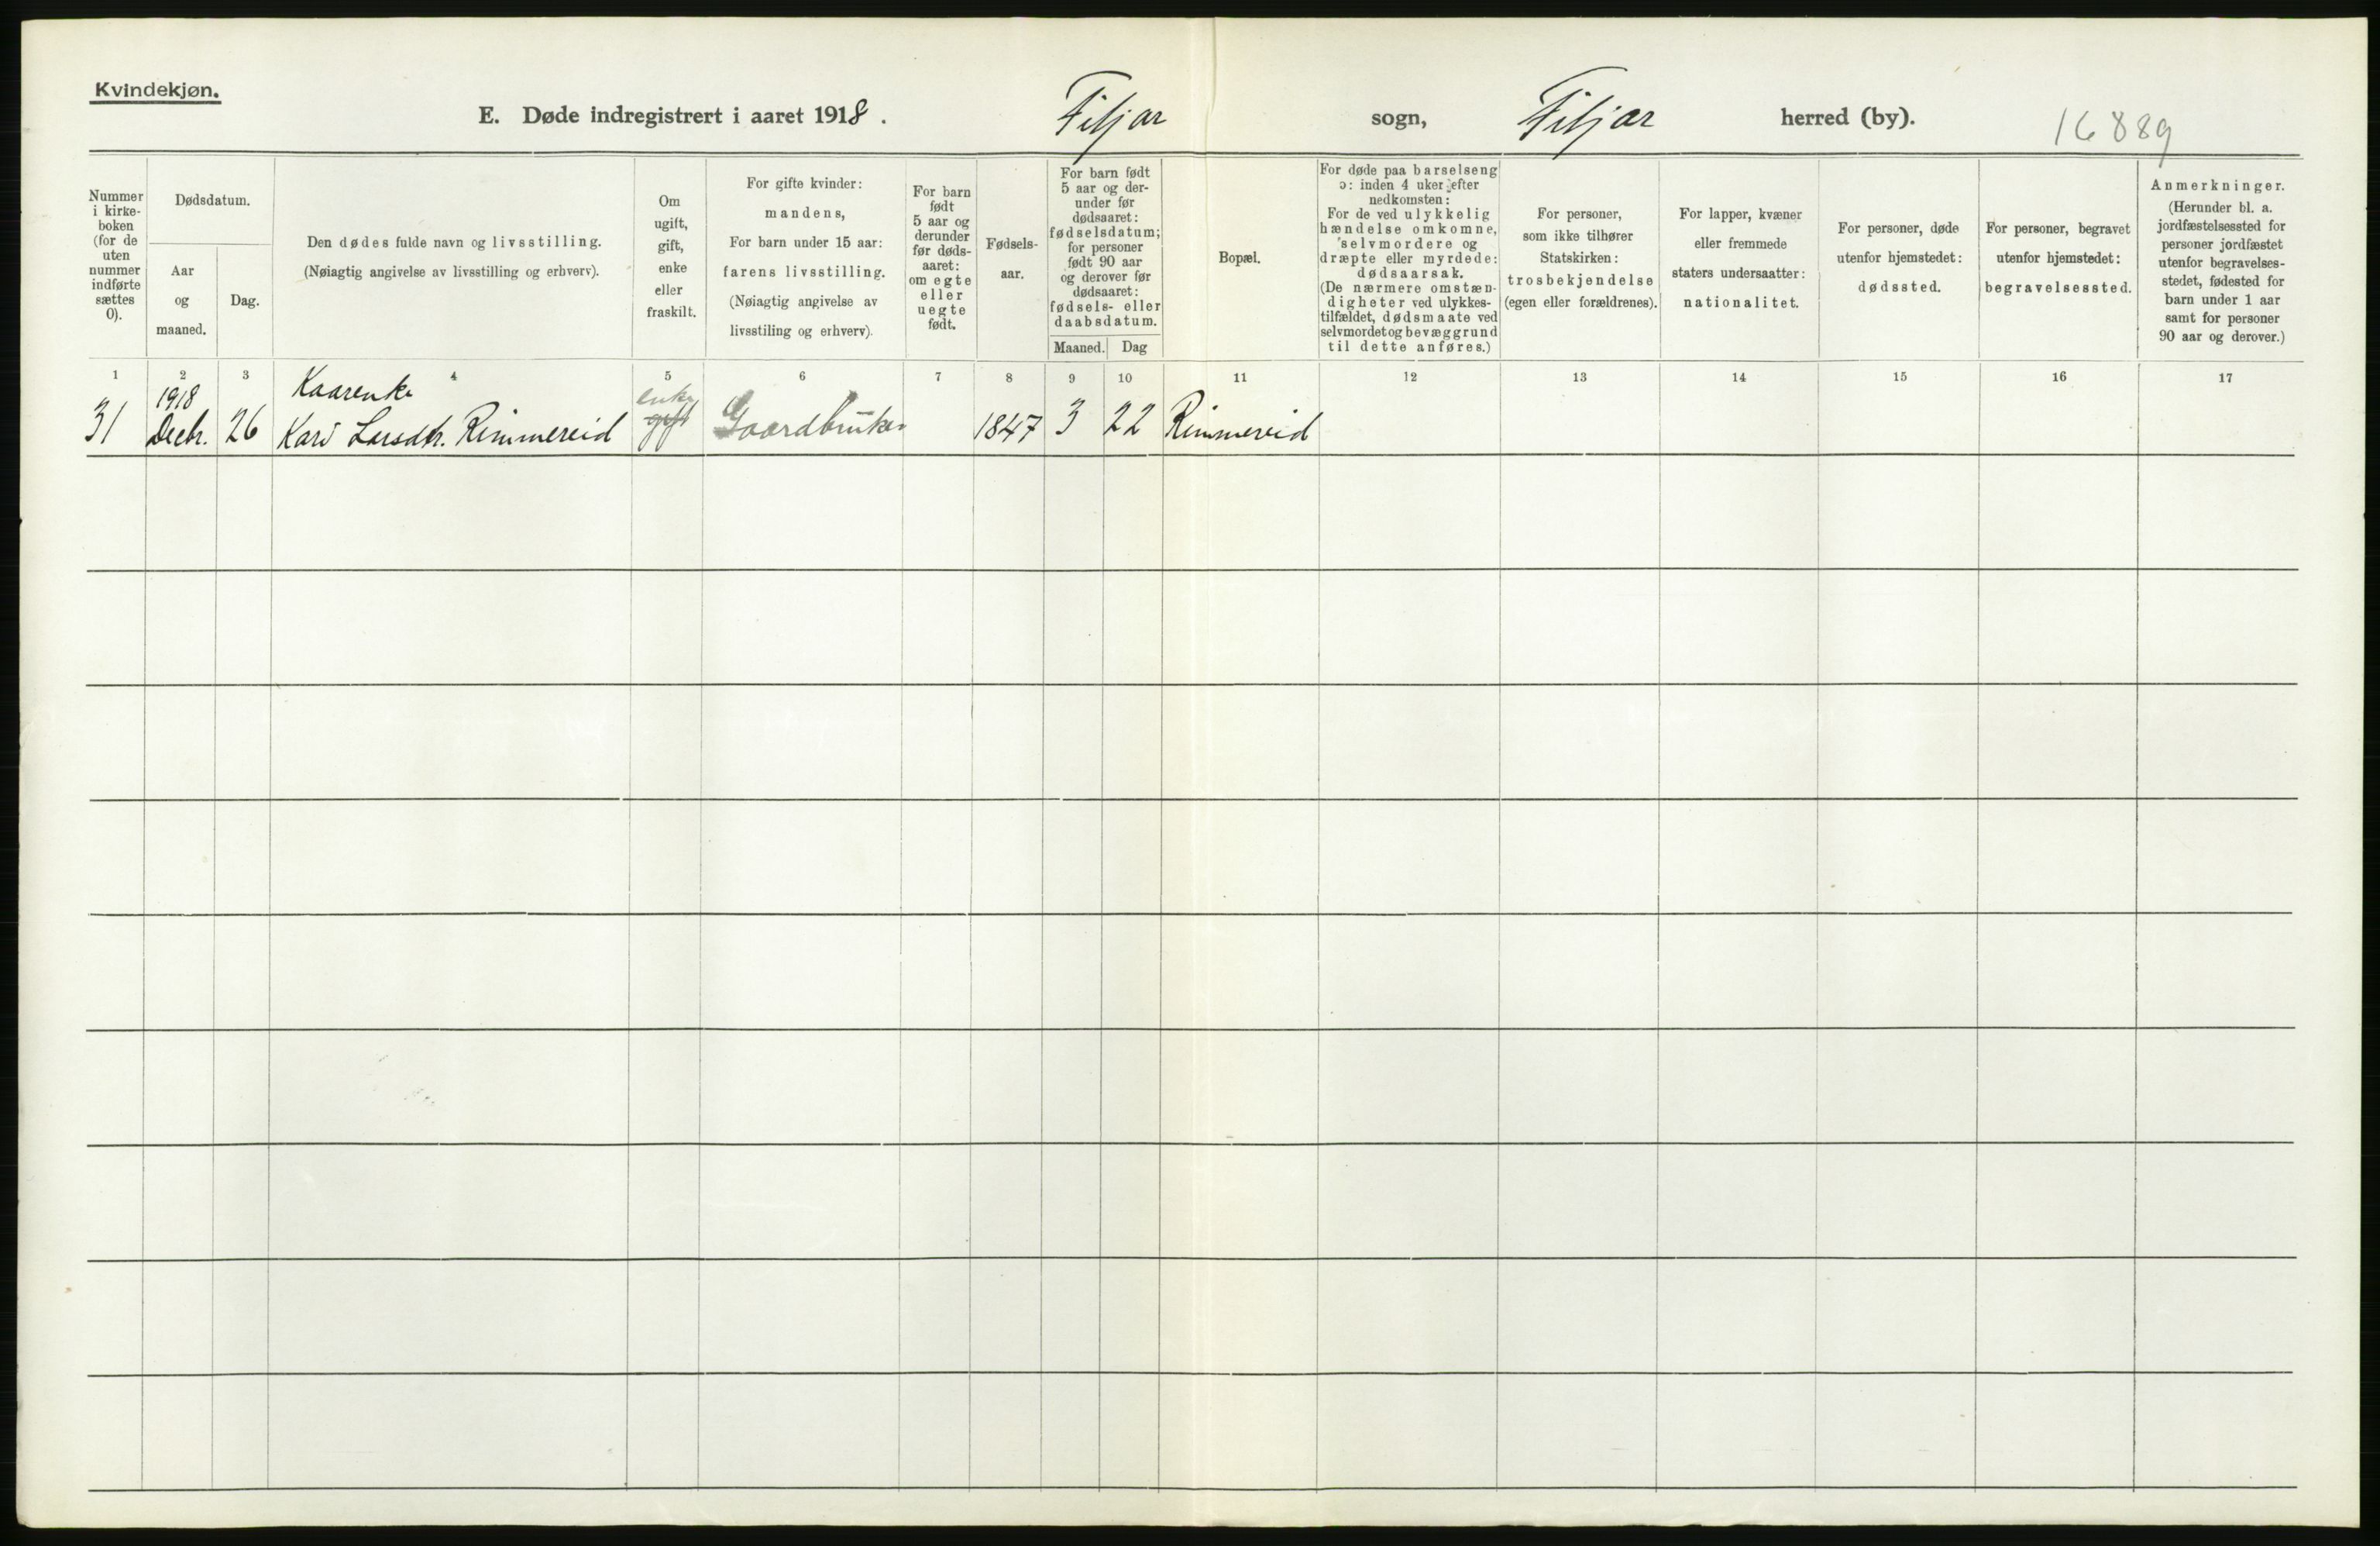 Kvindekjøn.
E. Døde indregistrert i aaret 1918. Fitjar sogn, Fitjar herred (by). 16889
Nummer
i kirke-
boken
(for de
uten
nummer
indførte
sættes
0).
Dødsdatum.
Aar
og
maaned.
Dag.
Den dødes fulde navn og livsstilling.
(Nøiagtig angivelse av livsstilling og erhverv).
Om
ugift,
gift,
enke
eller
fraskilt.
For gifte kvinder:
mandens,
For barn under 15 aar:
farens livsstilling.
(Nøiagtig angivelse av
livsstiling og erhverv).
For barn
født
5 aar og
derunder
før døds-
aaret:
om egte
eller
uegte
født.
Fødsels-
aar.
For barn født
5 aar og der-
under før
dødsaaret:
fødselsdatum;
for personer
født 90 aar
og derover før
dødsaaret:
fødsels- eller
daabsdatum.
Maaned. Dag
Bopæl.
For døde paa barselseng
ɔ: inden 4 uker efter
nedkomsten:
For de ved ulykkelig
hændelse omkomne,
selvmordere og
dræpte eller myrdede:
dødsaarsak.
(De nærmere omstæn-
digheter ved ulykkes-
tilfældet, dødsmaate ved
selvmordet og bevæggrund
til dette anføres.)
For personer,
som ikke tilhører
Statskirken:
trosbekjendelse
(egen eller forældrenes).
For lapper, kvæner
eller fremmede
staters undersaatter:
nationalitet.
For personer, døde
utenfor hjemstedet:
dødssted.
For personer, begravet
utenfor hjemstedet:
begravelsessted.
Anmerkninger.
(Herunder bl. a.
jordfæstelsessted for
personer jordfæstet
utenfor begravelses-
stedet, fødested for
barn under 1 aar
samt for personer
90 aar og derover.)
1 2 3 4 5 6 7 8 9 10 11 12 13 14 15 16 17
1918 Kaarenke enke
31 Decbr. 26 Kari Larsdtr. Rimmereid gift Gaardbruker 1847 3 22 Rimmereid